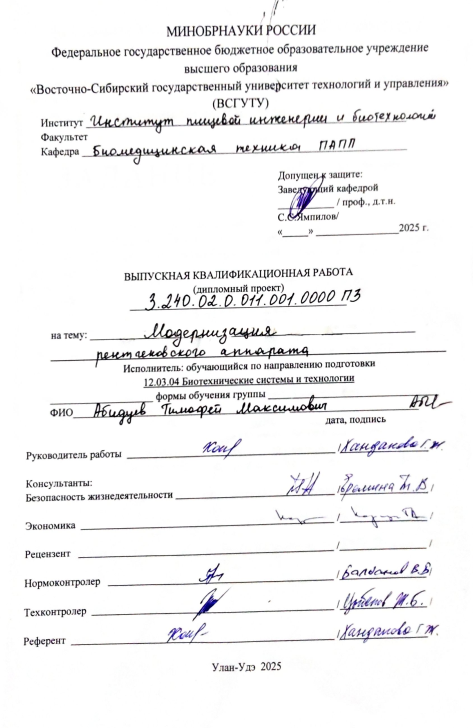 МИНОБРНАУКИ РОССИИ
Федеральное государственное бюджетное образовательное учреждение
высшего образования
«Восточно-Сибирский государственный университет технологий и управления»
(ВСГУТУ)
Институт Институт пищевой инженерии и биотехнологий
Факультет
Кафедра Биомедицинская техника ПАПП
Допущен к защите:
Заведующий кафедрой
/ проф., д.т.н.
С.С.Ямпилов/
«____» ________________2025 г.
ВЫПУСКНАЯ КВАЛИФИКАЦИОННАЯ РАБОТА
(дипломный проект)
3.240.02.0.011.001.0000 ПЗ
на тему: Модернизация
рентгеновского аппарата
Исполнитель: обучающийся по направлению подготовки
12.03.04 Биотехнические системы и технологии
формы обучения группы
ФИО Абидуев Тимофей Максимович
дата, подпись
Руководитель работы / Ханданова Г.Ж.
Консультанты:
Безопасность жизнедеятельности / /
Экономика / /
Рецензент / /
Нормоконтролер / Балданов В.Б. /
Техконтролер / Ж.Б. /
Референт / Ханданова Г.Ж. /
Улан-Удэ 2025